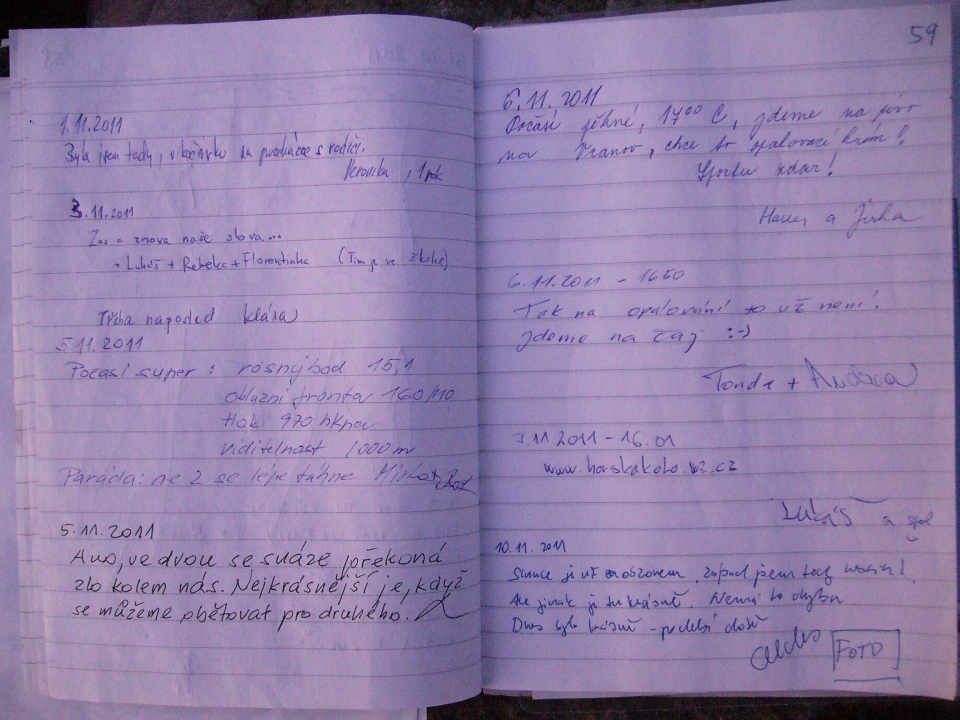 1.11.2011
Byla jsem tady, v kočárku na procházce s rodiči.
Veronika, 1 rok
3.11.2011
Zas a znova naše slova...
+ Lukáš + Rebeka + Florentinka (Tim je ve školce)
Třeba naposled Klára
5.11.2011
Počasí super: rosný bod 15,1
okluzní fronta 160/10
tlak 970 hkpa
viditelnost 1000 m
Paráda: ve 2 se lépe táhne
5.11.2011
Ano, ve dvou se snáze překoná
zlo kolem nás. Nejkrásnější je, když
se můžeme obětovat pro druhého.
59
6.11.2011
Počasí pěkné, 17°° C, jdeme na pivo
na Vranov, chce to opalovací krém!
Sportu zdar!
a Jirka
6.11.2011 - 1650
Tak na opalování to už není!
Jdeme na čaj :-)
Tonda + Andrea
7.11 2011 - 16.01
www.horskakolo.wz.cz
Lukáš a spol
10.11.2011
Slunce je už za obzorem, západ jsem tedy
Ale jinak je tu krásně. Nemá to chybu
Dnes bylo krásně -
FOTO